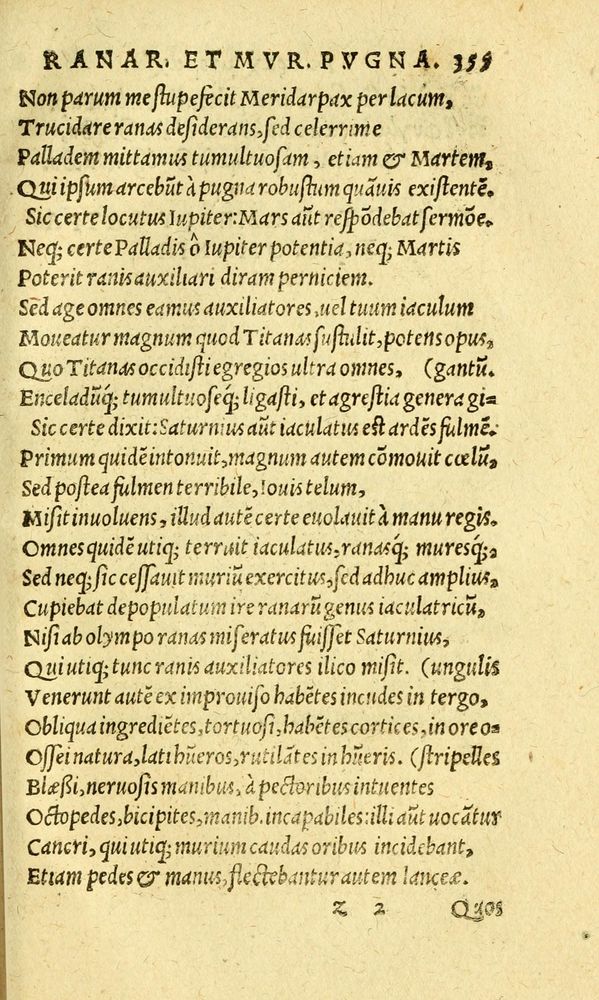 RANAR. ET MVR. PVGNA. 355
Non parum me stupefecit Meridarpax per lacum,
Trucidare ranas desiderans, sed celerrime
Palladem mittamus tumultuosam, etiam & Martem,
Qui ipsum arcebũt à pugna robustum quãuis existentẽ.
Sic certe locutus Iupiter: Mars aũt respõdebat sermõe.
Neq; certe Palladis ô Iupiter potentia, neq; Martis
Poterit ranis auxiliari diram perniciem.
Sed age omnes eamus auxiliatores, uel tuum iaculum
Moueatur magnum quod Titanas sustulit, potens opus,
Quo Titanas occidisti egregios ultra omnes, (gantũ.
Enceladũq; tumultuoseq; ligasti, et agrestia genera gi=
Sic certe dixit: Saturnius aũt iaculatus est ardẽs fulmẽ.
Primum quidẽ intonuit, magnum autem cõmouit cœlũ,
Sed postea fulmen terribile, Iouis telum,
Misit inuoluens, illud autẽ certe euolauit à manu regis.
Omnes quidẽ utiq; terruit iaculatus, ranasq; muresq;,
Sed neq; sic cessauit muriũ exercitus, sed adhuc amplius,
Cupiebat depopulatum ire ranarũ genus iaculatricũ,
Nisi ab olympo ranas miseratus fuisset Saturnius,
Qui utiq; tunc ranis auxiliatores ilico misit. (ungulis
Venerunt autẽ ex improuiso habẽtes incudes in tergo,
Obliqua ingrediẽtes, tortuosi, habẽtes cortices, in ore o=
Ossei natura, lati hũeros, rutilãtes in hũeris. (stripelles
Blæßi, neruosis manibus, à pectoribus intuentes
Octopedes, bicipites, manib. incapabiles: illi aũt uocãtur
Cancri, qui utiq; murium caudas oribus incidebant,
Etiam pedes & manus, flectebantur autem lanceæ.
Z 2 Quos